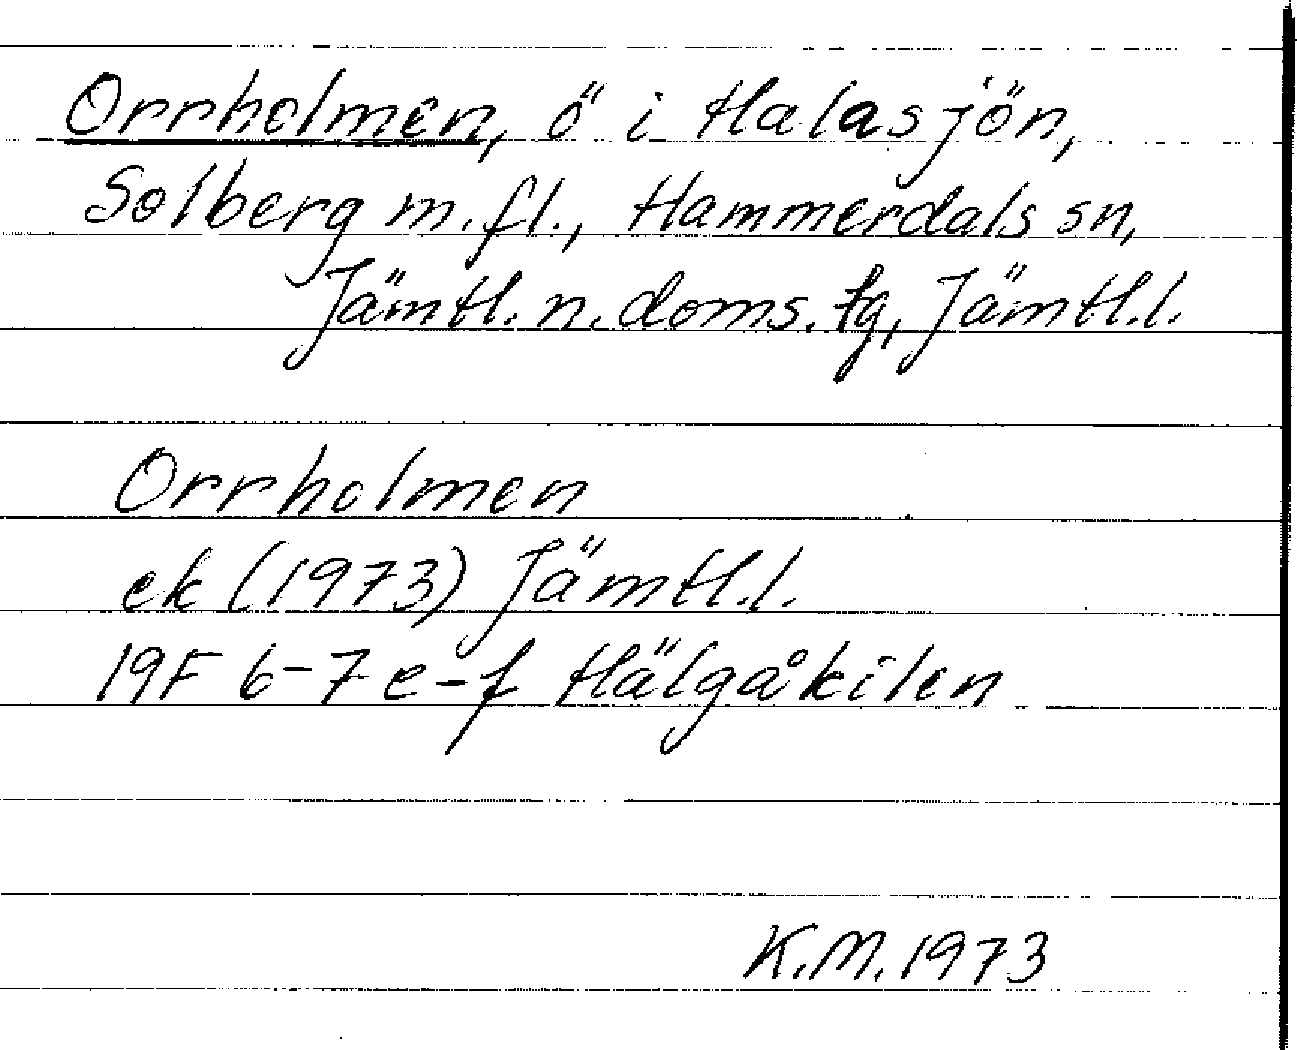 Orrholmen, ö i Halasjön,
Solberg m.fl., Hammerdals sn,
Jämtl. n. doms. tg, Jämtl.l.
Orrholmen
ek (1973) Jämtl.l.
19F 6-7 e-f Hälgåkilen
K.M. 1973